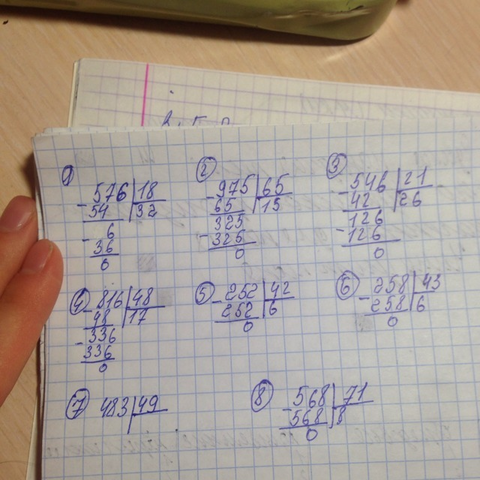 1
576 | 18
- 54 | 32
- 6
36
0
2
975 | 65
- 65 | 15
325
- 325
0
3
546 | 21
- 42 | 26
126
- 126
0
4
816 | 48
- 48 | 17
- 336
336
0
5
252 | 42
- 252 | 6
0
6
258 | 43
- 258 | 6
0
7
483 | 49
8
568 | 71
- 568 | 8
0